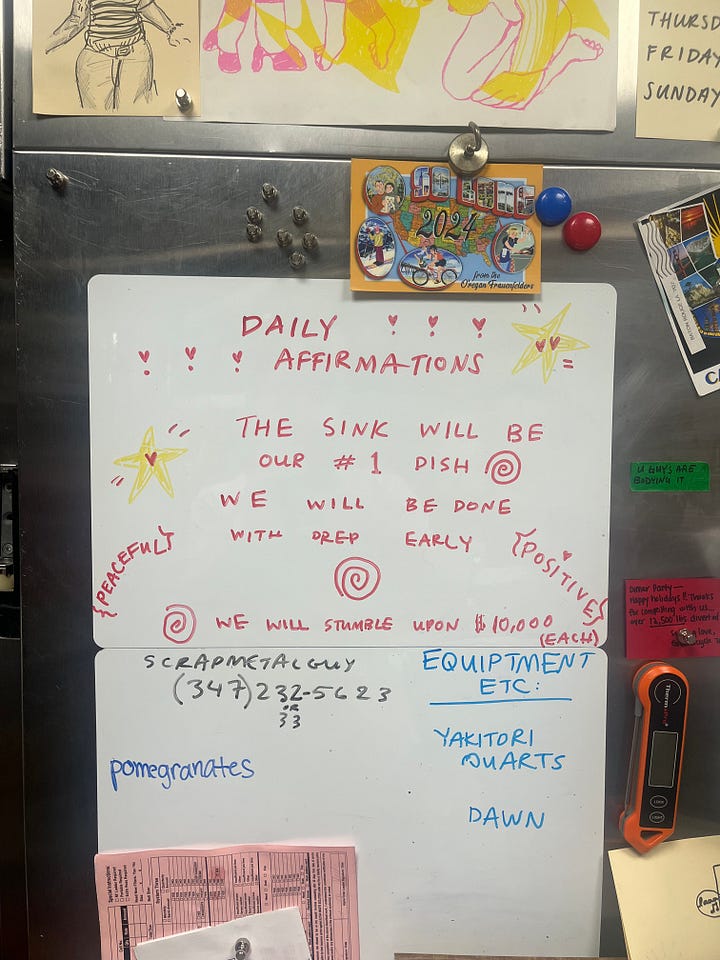 THURSD
FRIDAY
SUNDAY
SO LONG
2024
from the
Oregon Frauenfelders
DAILY
AFFIRMATIONS
THE SINK WILL BE
OUR #1 DISH
WE WILL BE DONE
WITH PREP EARLY
{PEACEFUL}
{POSITIVE}
WE WILL STUMBLE UPON $10,000
(EACH)
U GUYS ARE
BODYING IT
Dinner Party—
Happy holidays!! Thanks
for composting with us...
over 12,500 lbs diverted
love,
SCRAPMETALGUY
(347)232-5623
OR
33
EQUIPTMENT
ETC:
YAKITORI
QUARTS
pomegranates
DAWN
ThermoPro
LOCK
LIGHT
Special Instructions